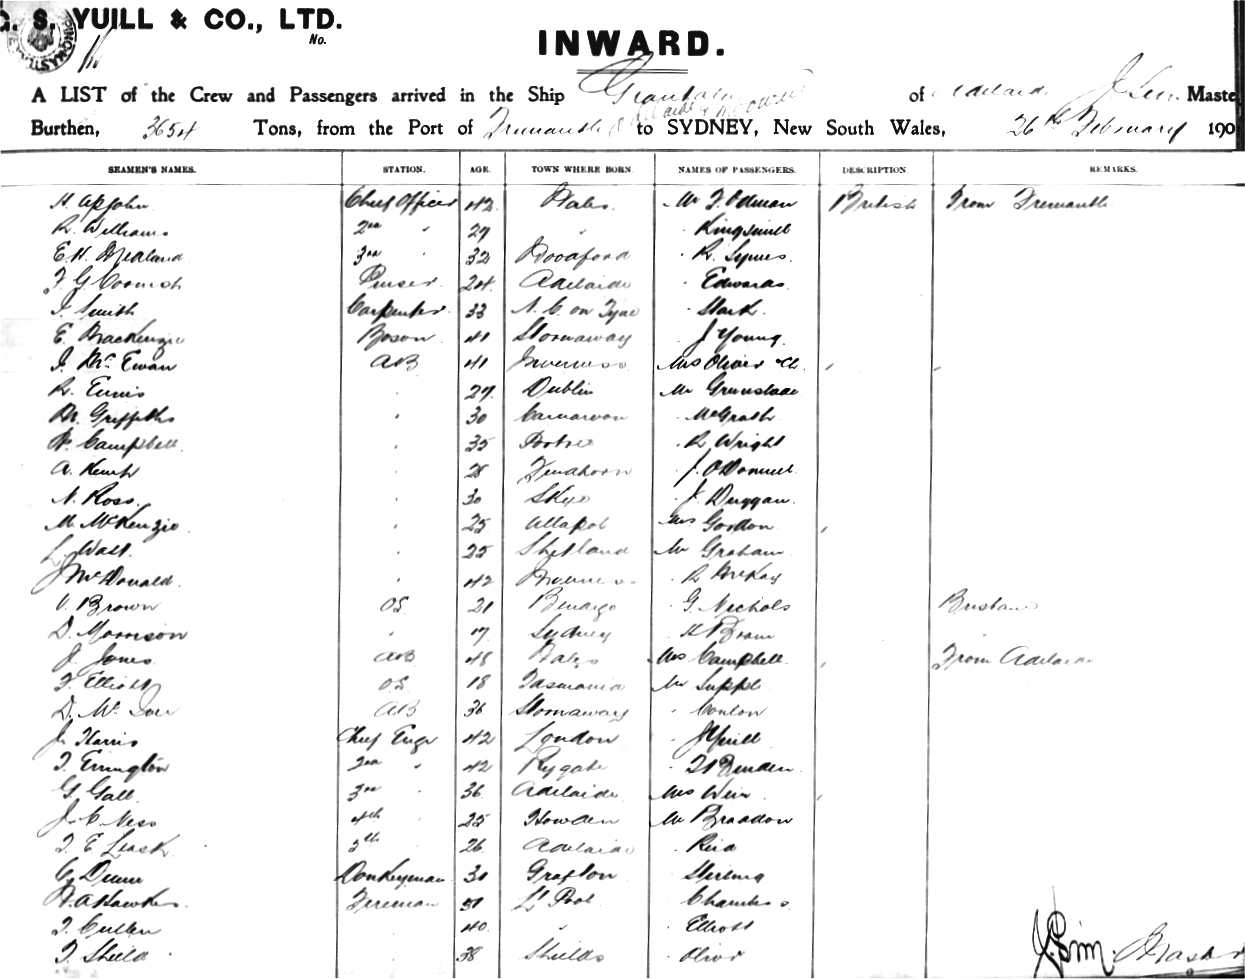 G. S. YUILL & CO., LTD.
No.
INWARD.
A LIST of the Crew and Passengers arrived in the Ship Grantala of Adelaide J. Sim Maste
Burthen, 3654 Tons, from the Port of Fremantle to SYDNEY, New South Wales, 26th February 190
SEAMEN'S NAMES. STATION. AGE. TOWN WHERE BORN. NAMES OF PASSENGERS. DESCRIPTION. REMARKS.
H. Apjohn Chief Officer 42 Wales Mr F. Odman British From Fremantle
R. Williams 2nd " 29 " " Kingsmill
E. H. 3rd " 32 " R. Symes.
F G Cornish Purser 24 Adelaide " Edwards
J. Smith Carpenter 33 N. C. on Tyne " Stark
E. MacKenzie Boson 41 Stornaway J Young
J. McEwan AB 41 Inverness Mrs Oliver & Ch. " "
R. Ennis " 29 Dublin Mr
M. Griffiths " 30 Carnarvon " McGrath
W. Campbell " 35 " R Wright
A. Kemp " 28 Findhorn " J. O'Donnell
N. Ross. " 30 Skye " J. Duggan.
M. McKenzie " 25 Ullapol Mrs Gordon "
L. Watt. " 25 Shetland Mr Graham
J McDonald. " 42 Inverness " R McKay
V. Brown OS 21 Bendigo " G. Nichols Brisbane
D. Morrison " 17 Sydney "
J. Jones AB 48 Wales Mrs Campbell " From Adelaide
F. Elliott OS 18 Tasmania Mr
D. Mc AB 36 Stornaway " Conlon
J. Harris Chief Engr 42 London " J Yuill
T. Errington 2nd " 42 Rygate "
G. Gall 3rd " 36 Adelaide Mrs Weir "
J. C. Ness 4th " 25 Howden Mr Braddon
F. E. Leask 5th " 26 Adelaide " Reid
C. Dunn Donkeyman 30 Grafton " Stirling
H. A. Hawkes Fireman 31 L'Pool " Chambers
T. Cullen " 40 " " Elliott
T. Shield " 38 Shields " Oliver J. Sim. Master